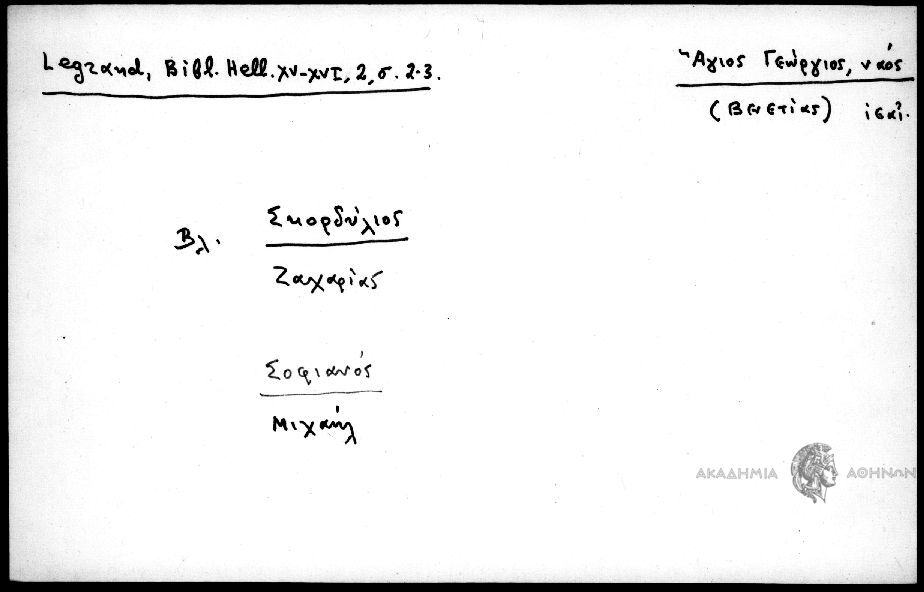 Legrand, Bibl. Hell. XV-XVI, 2, σ. 2-3.
Ἅγιος Γεώργιος, ναός
(Βενετίας)
Βλ. Σκορδύλιος
Ζαχαρίας
Σοφιανός
Μιχαήλ
ΑΚΑΔΗΜΙΑ ΑΘΗΝΩΝ